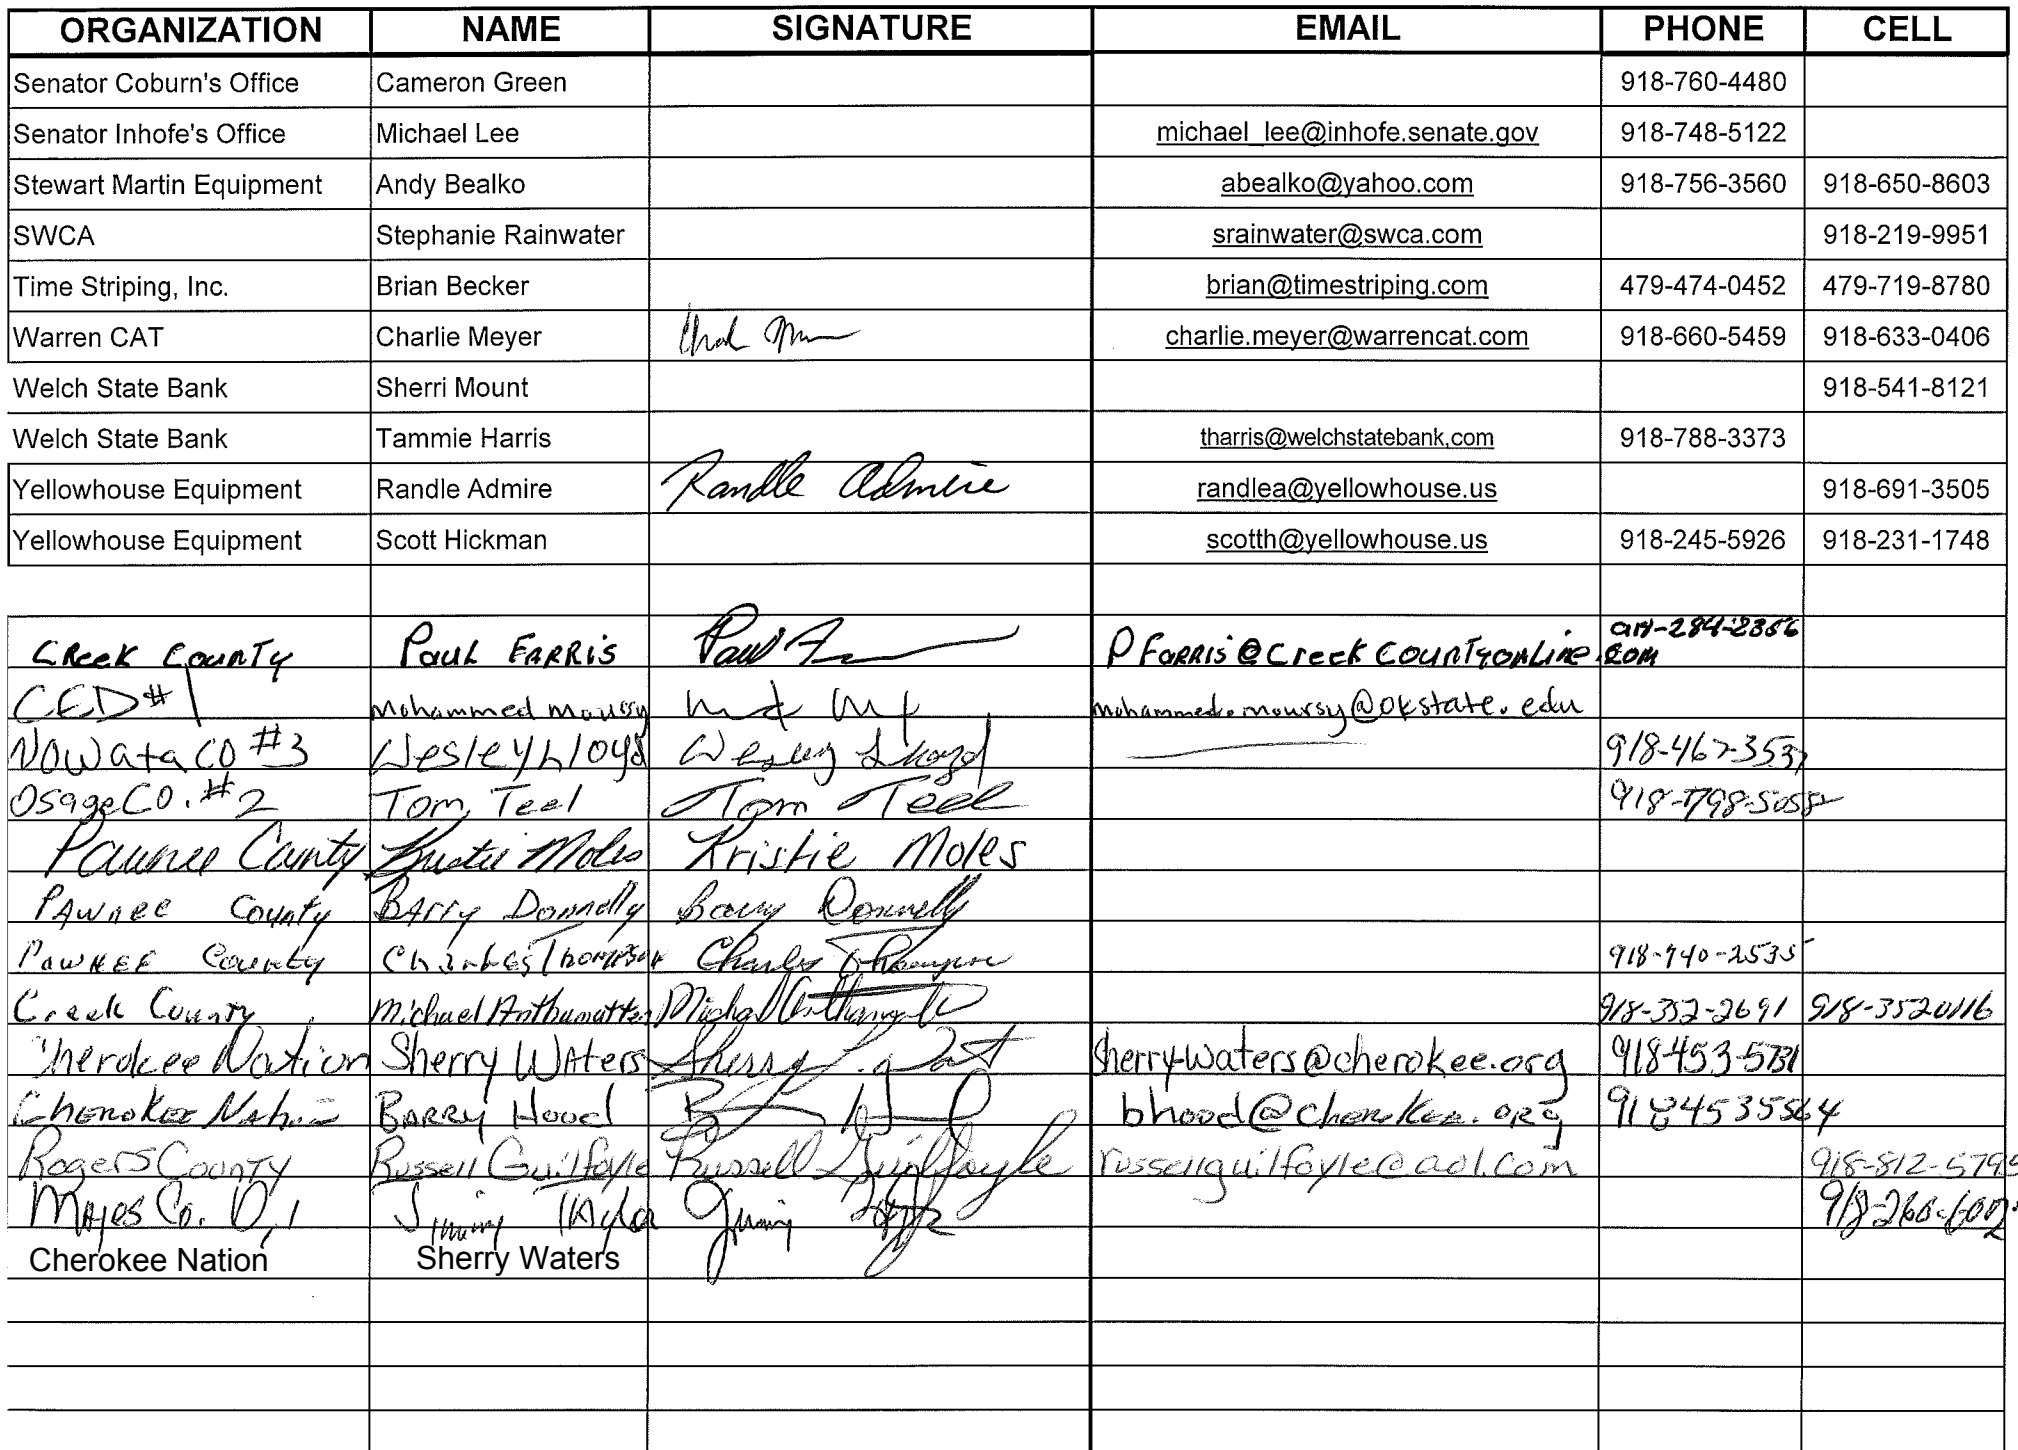 ORGANIZATION NAME SIGNATURE EMAIL PHONE CELL
Senator Coburn's Office Cameron Green 918-760-4480
Senator Inhofe's Office Michael Lee michael_lee@inhofe.senate.gov 918-748-5122
Stewart Martin Equipment Andy Bealko abealko@yahoo.com 918-756-3560 918-650-8603
SWCA Stephanie Rainwater srainwater@swca.com 918-219-9951
Time Striping, Inc. Brian Becker brian@timestriping.com 479-474-0452 479-719-8780
Warren CAT Charlie Meyer charlie.meyer@warrencat.com 918-660-5459 918-633-0406
Welch State Bank Sherri Mount 918-541-8121
Welch State Bank Tammie Harris tharris@welchstatebank,com 918-788-3373
Yellowhouse Equipment Randle Admire Randle Admire randlea@yellowhouse.us 918-691-3505
Yellowhouse Equipment Scott Hickman scotth@yellowhouse.us 918-245-5926 918-231-1748
Creek County Paul Farris Paul PFarris@creekcountyonline.com
CED #1 Mohammed Moursy mohammed.moursy@okstate.edu
Nowata Co #3 Wesley Lloyd Wesley Lloyd
Osage Co. #2 Tom Teel Tom Teel
Pawnee County Kristie Moles Kristie Moles
Pawnee County Barry Donnelly Barry Donnelly
Pawnee County Charles Thompson Charles Thompson
Creek County Michael 918-352-2691 918-3520116
Cherokee Nation Sherry Waters Sherry sherry-waters@cherokee.org
Cherokee Nation Barry Hood bhood@cherokee.org 9184535564
Rogers County Russell Guilfoyle Russell Guilfoyle russellguilfoyle@aol.com 918-812-5795
Mayes Co. D,1 Jimmy
Cherokee Nation Sherry Waters